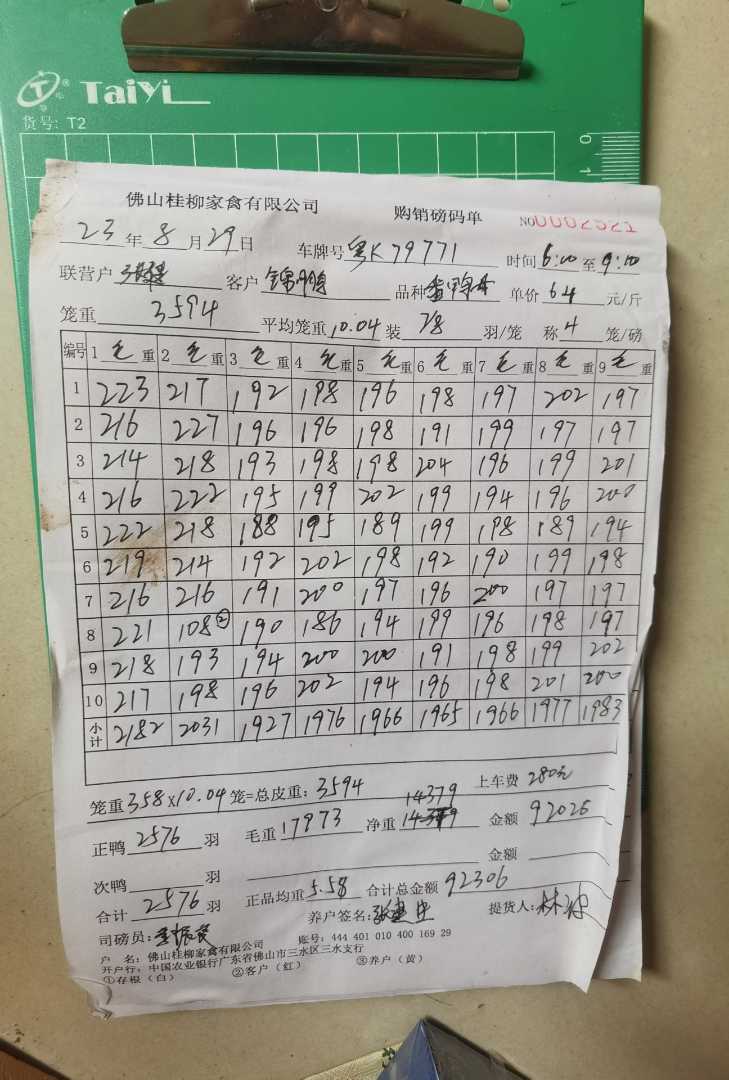 TaiYi
货号: T2
0 1
佛山桂柳家食有限公司 购销磅码单 NO0002521
23年8月29日 车牌号粤K79771 时间6:00至9:10
联营户 客户锦鹏 品种 单价64元/斤
笼重3594 平均笼重10.04装7/8羽/笼 称4笼/磅
编号 1毛重 2毛重 3毛重 4毛重 5毛重 6毛重 7毛重 8毛重 9毛重
1 223 217 192 198 196 198 197 202 197
2 216 227 196 196 198 191 199 197 197
3 214 218 193 198 198 204 196 199 201
4 216 222 195 199 202 199 194 196 200
5 222 218 188 195 189 199 198 189 194
6 219 214 192 202 198 192 190 199 198
7 216 216 191 200 197 196 200 197 197
8 221 108② 190 186 194 199 196 198 197
9 218 193 194 200 200 191 198 199 202
10 217 198 196 202 194 196 198 201 200
小计 2182 2031 1927 1976 1966 1965 1966 1977 1983
笼重358×10.04笼=总皮重:3594 上车费280元
正鸭2576羽 毛重17973 净重14379 金额92026
次鸭 羽 金额
合计2576羽 正品均重5.58 合计总金额92306
司磅员: 养户签名: 提货人:林
户 名: 佛山桂柳家禽有限公司 账号: 444 401 010 400 169 29
开户行: 中国农业银行广东省佛山市三水区三水支行
①存根（白） ②客户（红） ③养户（黄）